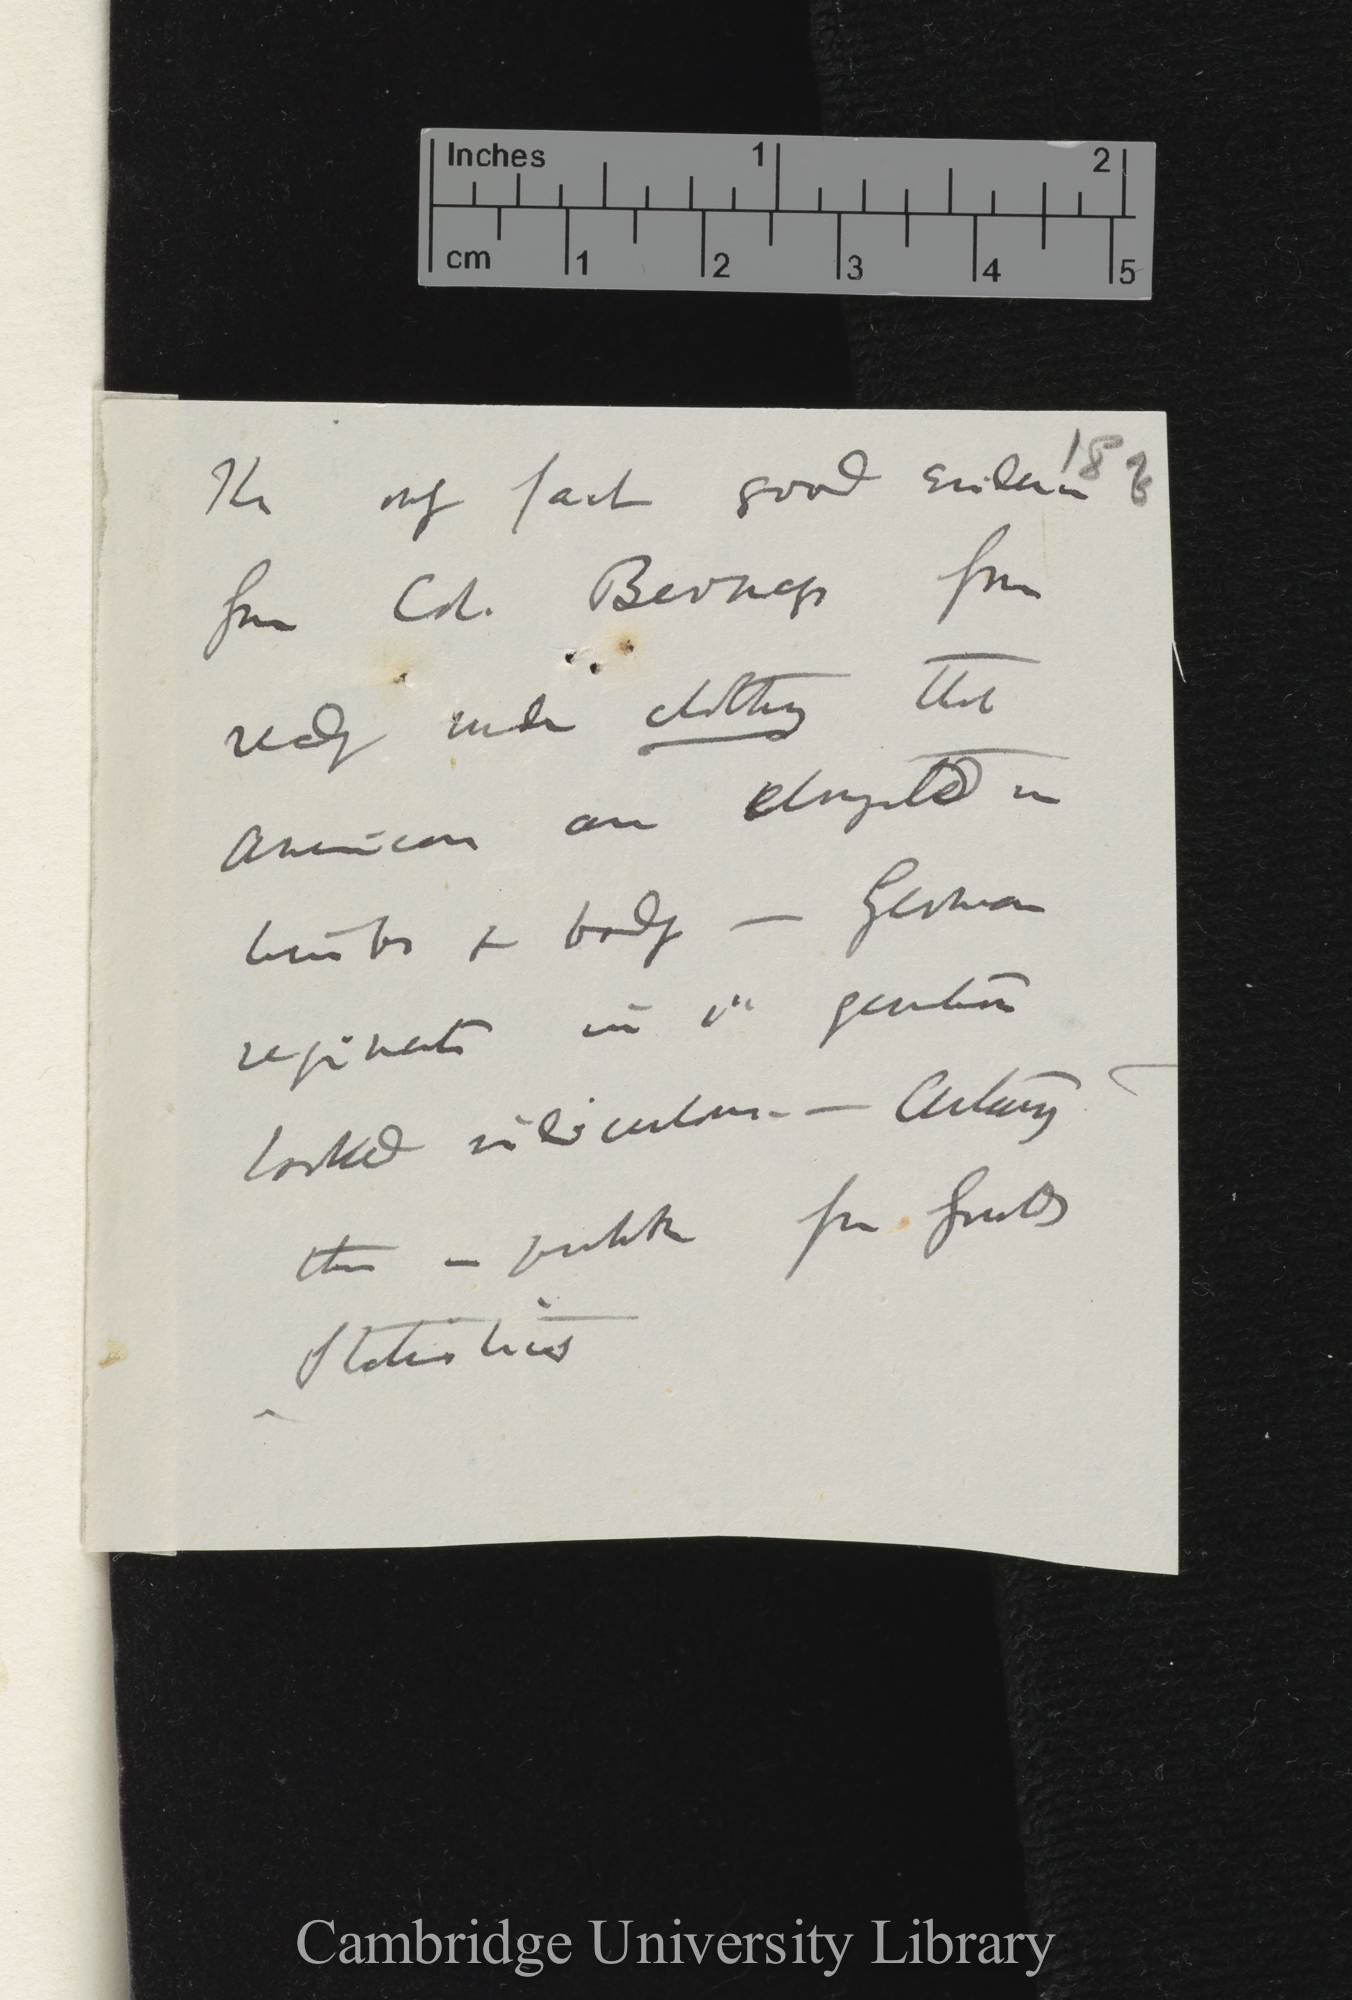 Inches 1 2
cm 1 2 3 4 5
18
The only fact good evidence
from Col. Bernays from
ready made clothing that
American are elongated in
limbs & body — German
regiments in 1st generation
looked ridiculous. — Certainly
this is from Goulds
Statistics
Cambridge University Library